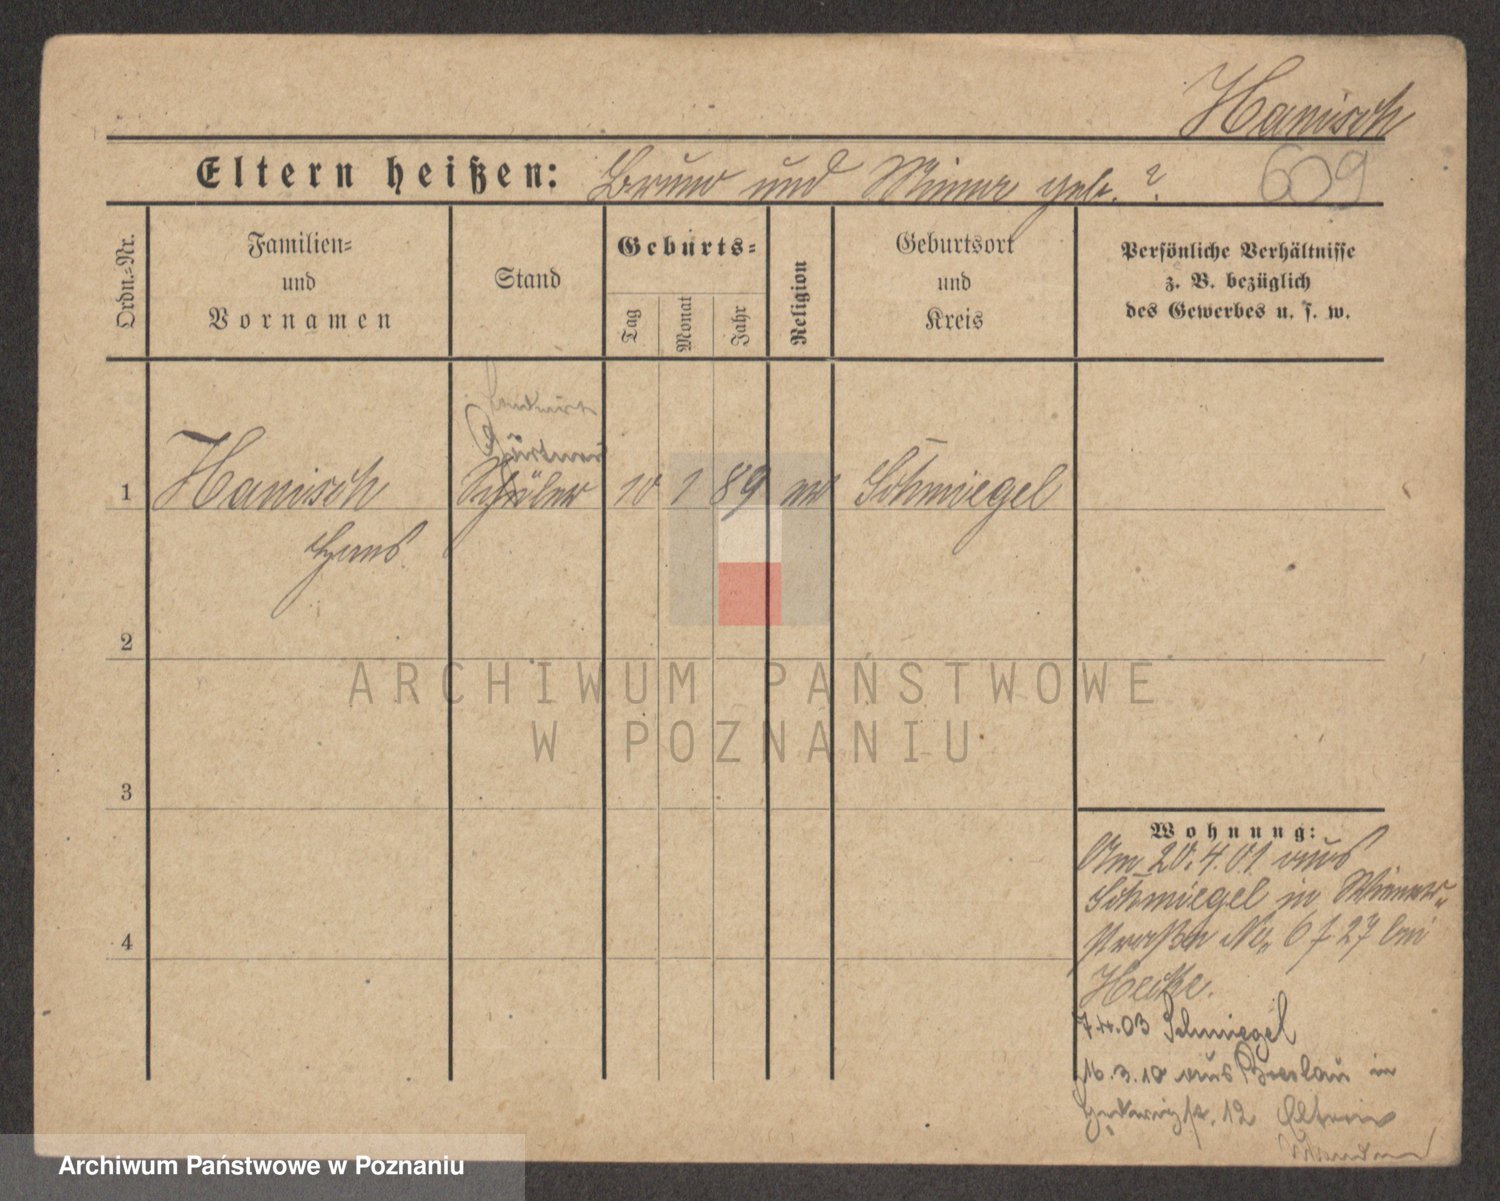 Hanisch
609
Eltern heißen: Bruno und Minna geb. ?
Ordn.=Nr.
Familien=
und
Vornamen
Stand
Geburts=
Tag
Monat
Jahr
Religion
Geburtsort
und
Kreis
Persönliche Verhältnisse
z. B. bezüglich
des Gewerbes u. s. w.
Landwirt
Gärtner
1 Hanisch Schüler 10 1 89 ev Schmiegel
Hans
2
3
4
Wohnung:
Am 20.4.01 aus
Schmiegel in Wiener-
straße No. 6 f 27 bei
Hecke.
7.4.03 Schmiegel
16.3.10 aus Breslau in
Hedwigst. 12
ARCHIWUM PAŃSTWOWE
W POZNANIU
Archiwum Państwowe w Poznaniu